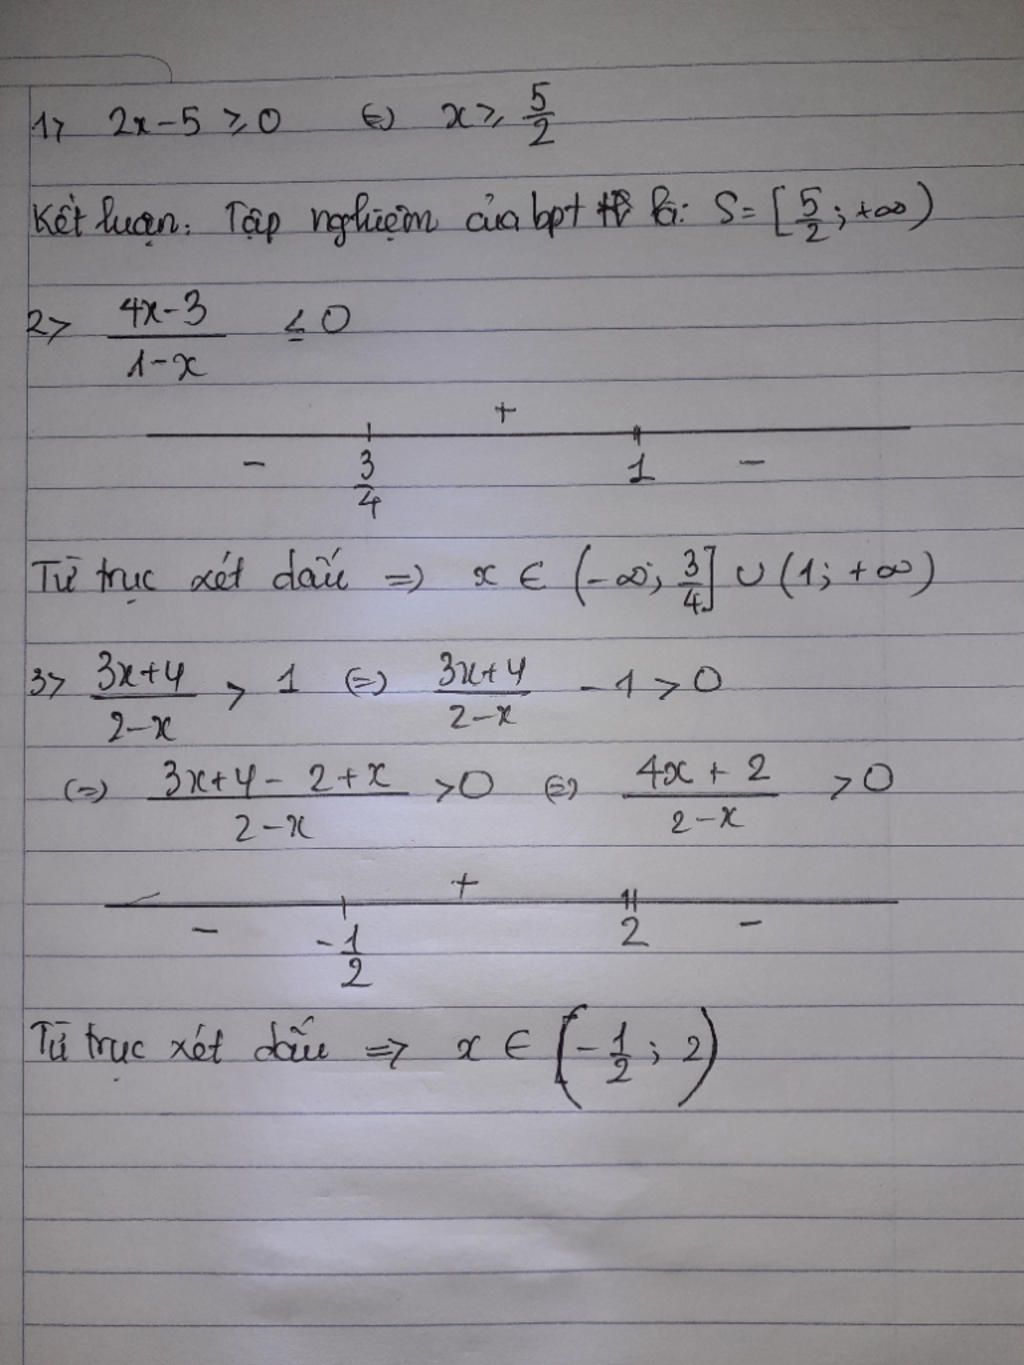 1> 2x-5 ≥ 0 (=) x ≥ 5/2
Kết luận: Tập nghiệm của bpt là: S = [5/2; +∞)
2> (4x-3)/(1-x) ≤ 0
+
- 3/4 1 -
Từ trục xét dấu =) x ∈ (-∞; 3/4] ∪ (1; +∞)
3> (3x+4)/(2-x) > 1 (=) (3x+4)/(2-x) - 1 > 0
(=) (3x+4-2+x)/(2-x) > 0 (=) (4x+2)/(2-x) > 0
+
- -1/2 2 -
Từ trục xét dấu => x ∈ (-1/2; 2)